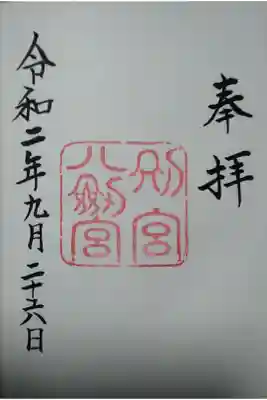 奉拝
別宮
八劔宮
令和二年九月二十六日